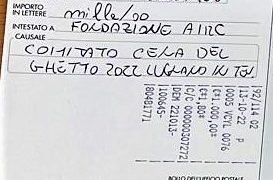 IMPORTO
IN LETTERE mille/00
INTESTATO A FONDAZIONE AIRC
CAUSALE
COMITATO CENA DEL
GHETTO 2022 LUGNANO IN TEV.
92/114 02
13-10-22 P
0005 VCYL 0076
€*1.000,00*
€*1,80*
C/C 000003072272
DCM 221013-
100645-
80481771
BOLLO DELL'UFFICIO POSTALE